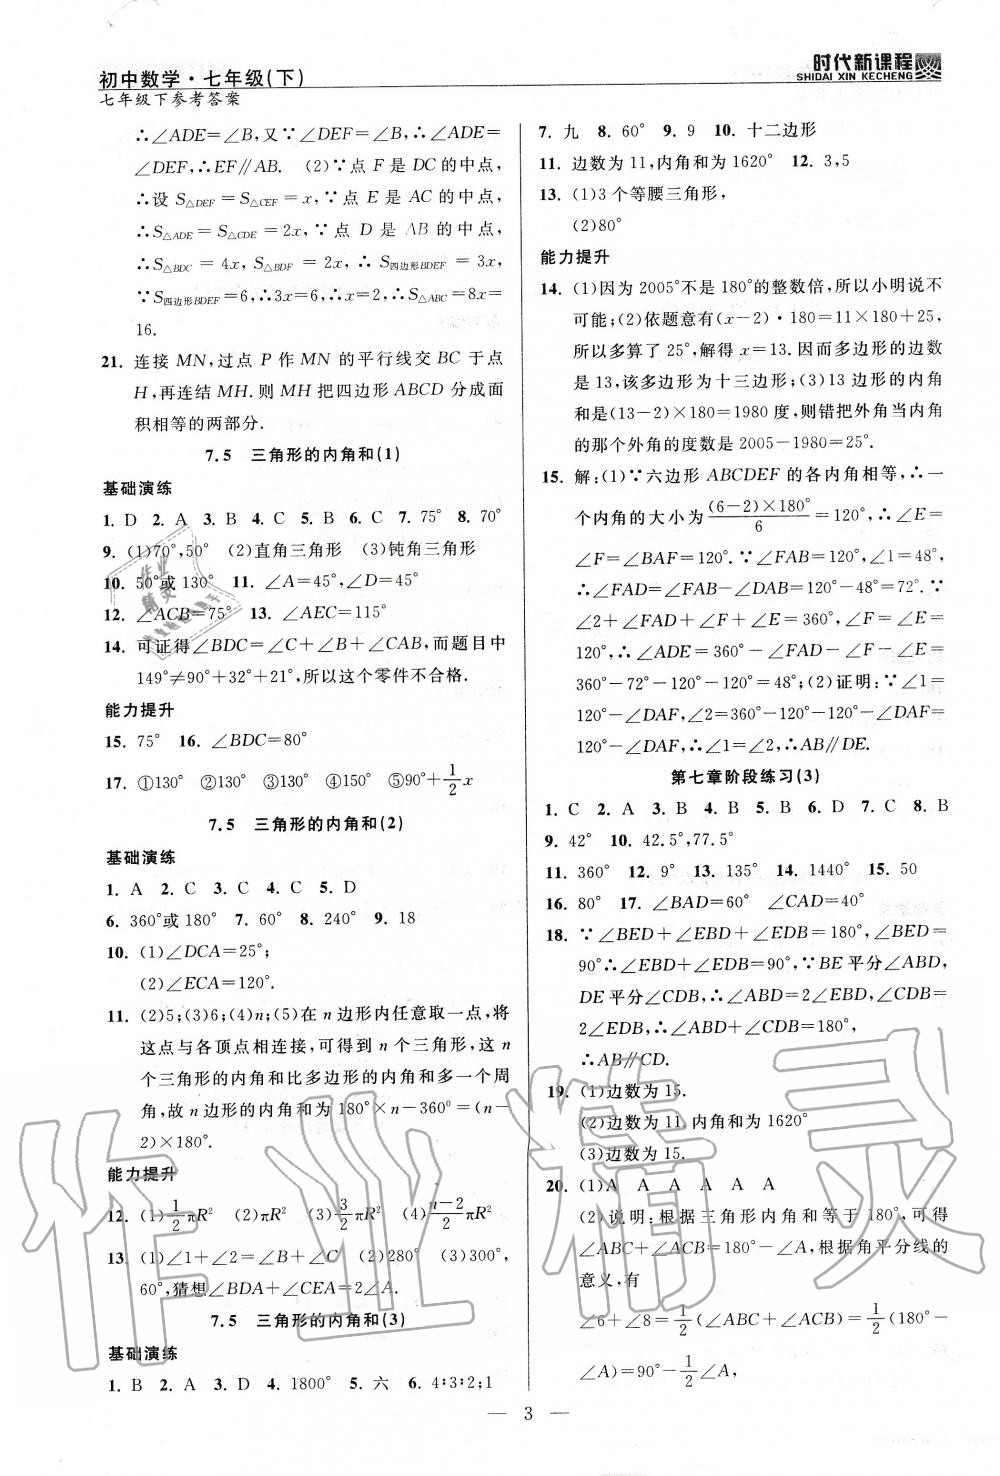 初中数学·七年级(下)
七年级下参考答案
时代新课程
SHIDAI XIN KECHENG
∴∠ADE=∠B,又∵∠DEF=∠B,∴∠ADE=
∠DEF,∴EF∥AB. (2)∵点 F 是 DC 的中点,
∴设 S△DEF=S△CEF=x,∵点 E 是 AC 的中点,
∴S△ADE=S△CDE=2x,∵点 D 是 AB 的中点,
∴S△BDC=4x,S△BDF=2x,∴S四边形BDEF=3x,
∵S四边形BDEF=6,∴3x=6,∴x=2,∴S△ABC=8x=
16.
21. 连接 MN,过点 P 作 MN 的平行线交 BC 于点
H,再连结 MH.则 MH 把四边形 ABCD 分成面
积相等的两部分.
7.5 三角形的内角和(1)
基础演练
1. D 2. A 3. B 4. C 5. B 6. C 7. 75° 8. 70°
9. (1)70°,50° (2)直角三角形 (3)钝角三角形
10. 50°或130° 11. ∠A=45°,∠D=45°
12. ∠ACB=75° 13. ∠AEC=115°
14. 可证得∠BDC=∠C+∠B+∠CAB,而题目中
149°≠90°+32°+21°,所以这个零件不合格.
能力提升
15. 75° 16. ∠BDC=80°
17. ①130° ②130° ③130° ④150° ⑤90°+1/2x
7.5 三角形的内角和(2)
基础演练
1. A 2. C 3. C 4. C 5. D
6. 360°或180° 7. 60° 8. 240° 9. 18
10. (1)∠DCA=25°;
(2)∠ECA=120°.
11. (2)5;(3)6;(4)n;(5)在 n 边形内任意取一点,将
这点与各顶点相连接,可得到 n 个三角形,这 n
个三角形的内角和比多边形的内角和多一个周
角,故 n 边形的内角和为 180°×n-360⁰=(n-
2)×180°.
能力提升
12. (1)1/2πR² (2)πR² (3)3/2πR² (4)n-2/2πR²
13. (1)∠1+∠2=∠B+∠C (2)280° (3)300°,
60°,猜想∠BDA+∠CEA=2∠A.
7.5 三角形的内角和(3)
基础演练
1. B 2. A 3. A 4. 1800° 5. 六 6. 4∶3∶2;1
7. 九 8. 60° 9. 9 10. 十二边形
11. 边数为11,内角和为1620° 12. 3,5
13. (1)3个等腰三角形,
(2)80°
能力提升
14. (1)因为2005°不是180°的整数倍,所以小明说不
可能;(2)依题意有(x-2)·180=11×180+25,
所以多算了25°,解得 x=13.因而多边形的边数
是13,该多边形为十三边形;(3)13边形的内角
和是(13-2)×180=1980度,则错把外角当内角
的那个外角的度数是2005-1980=25°.
15. 解:(1)∵六边形 ABCDEF 的各内角相等,∴一
个内角的大小为(6-2)×180°/6=120°,∴∠E=
∠F=∠BAF=120°.∵∠FAB=120°,∠1=48°,
∴∠FAD=∠FAB-∠DAB=120°-48°=72°.∵
∠2+∠FAD+∠F+∠E=360°,∠F=∠E=
120°,∴∠ADE=360°-∠FAD-∠F-∠E=
360°-72°-120°-120°=48°;(2)证明:∵∠1=
120°-∠DAF,∠2=360°-120°-120°-∠DAF=
120°-∠DAF,∴∠1=∠2,∴AB∥DE.
第七章阶段练习(3)
1. C 2. A 3. B 4. B 5. B 6. D 7. C 8. B
9. 42° 10. 42.5°,77.5°
11. 360° 12. 9° 13. 135° 14. 1440° 15. 50
16. 80° 17. ∠BAD=60° ∠CAD=40°
18. ∵∠BED+∠EBD+∠EDB=180°,∠BED=
90°∴∠EBD+∠EDB=90°,∵BE平分∠ABD,
DE平分∠CDB,∴∠ABD=2∠EBD,∠CDB=
2∠EDB,∴∠ABD+∠CDB=180°,
∴AB∥CD.
19. (1)边数为15.
(2)边数为11 内角和为1620°
(3)边数为15.
20. (1)A A A A A A
(2)说明:根据三角形内角和等于180°,可得
∠ABC+∠ACB=180°-∠A,根据角平分线的
意义,有
∠6+∠8=1/2(∠ABC+∠ACB)=1/2(180°-
∠A)=90°-1/2∠A,
— 3 —
作业精灵